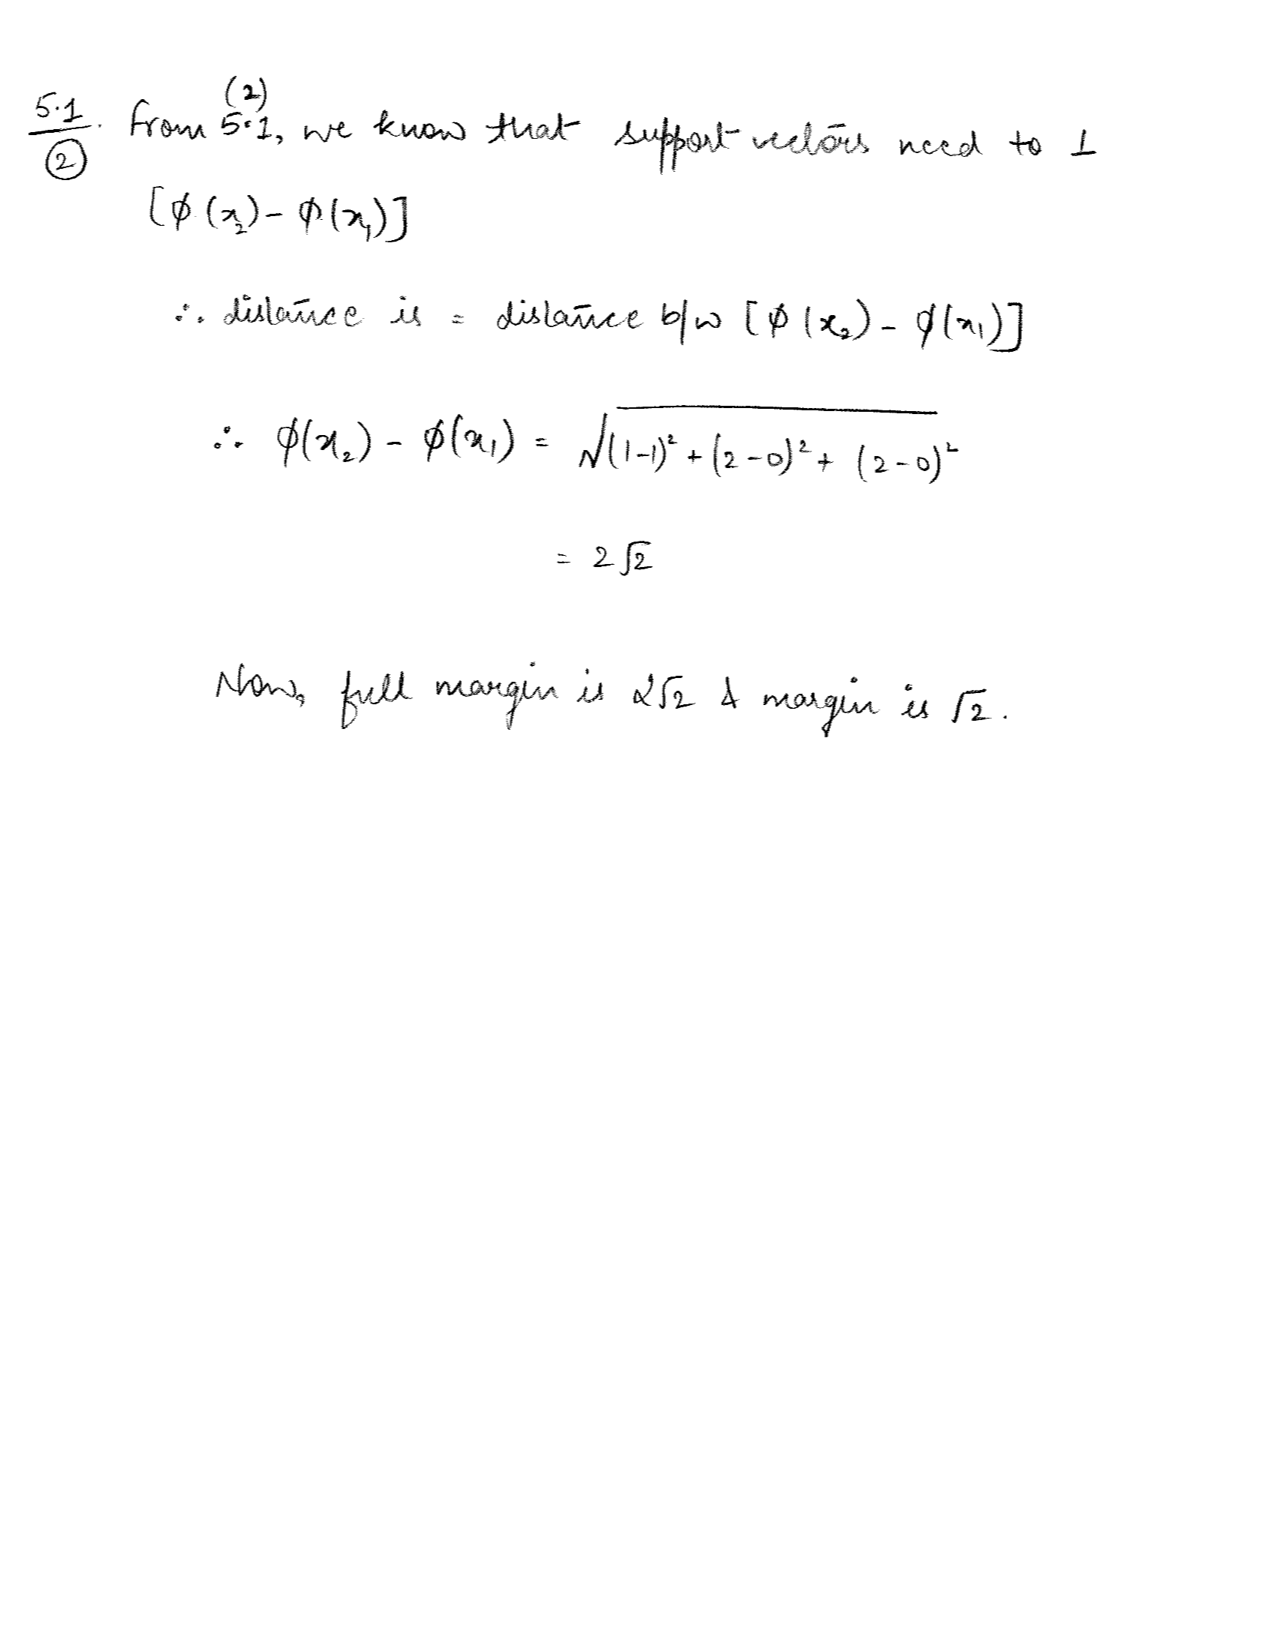 (2)
5.1 ② . From 5.1, we know that support vectors need to ⊥
[φ(x₂) - φ(x₁)]
∴ distance is = distance b/w [φ(x₂) - φ(x₁)]
∴ φ(x₂) - φ(x₁) = √((1-1)² + (2-0)² + (2-0)²
= 2√2
Now, full margin is 2√2 & margin is √2.